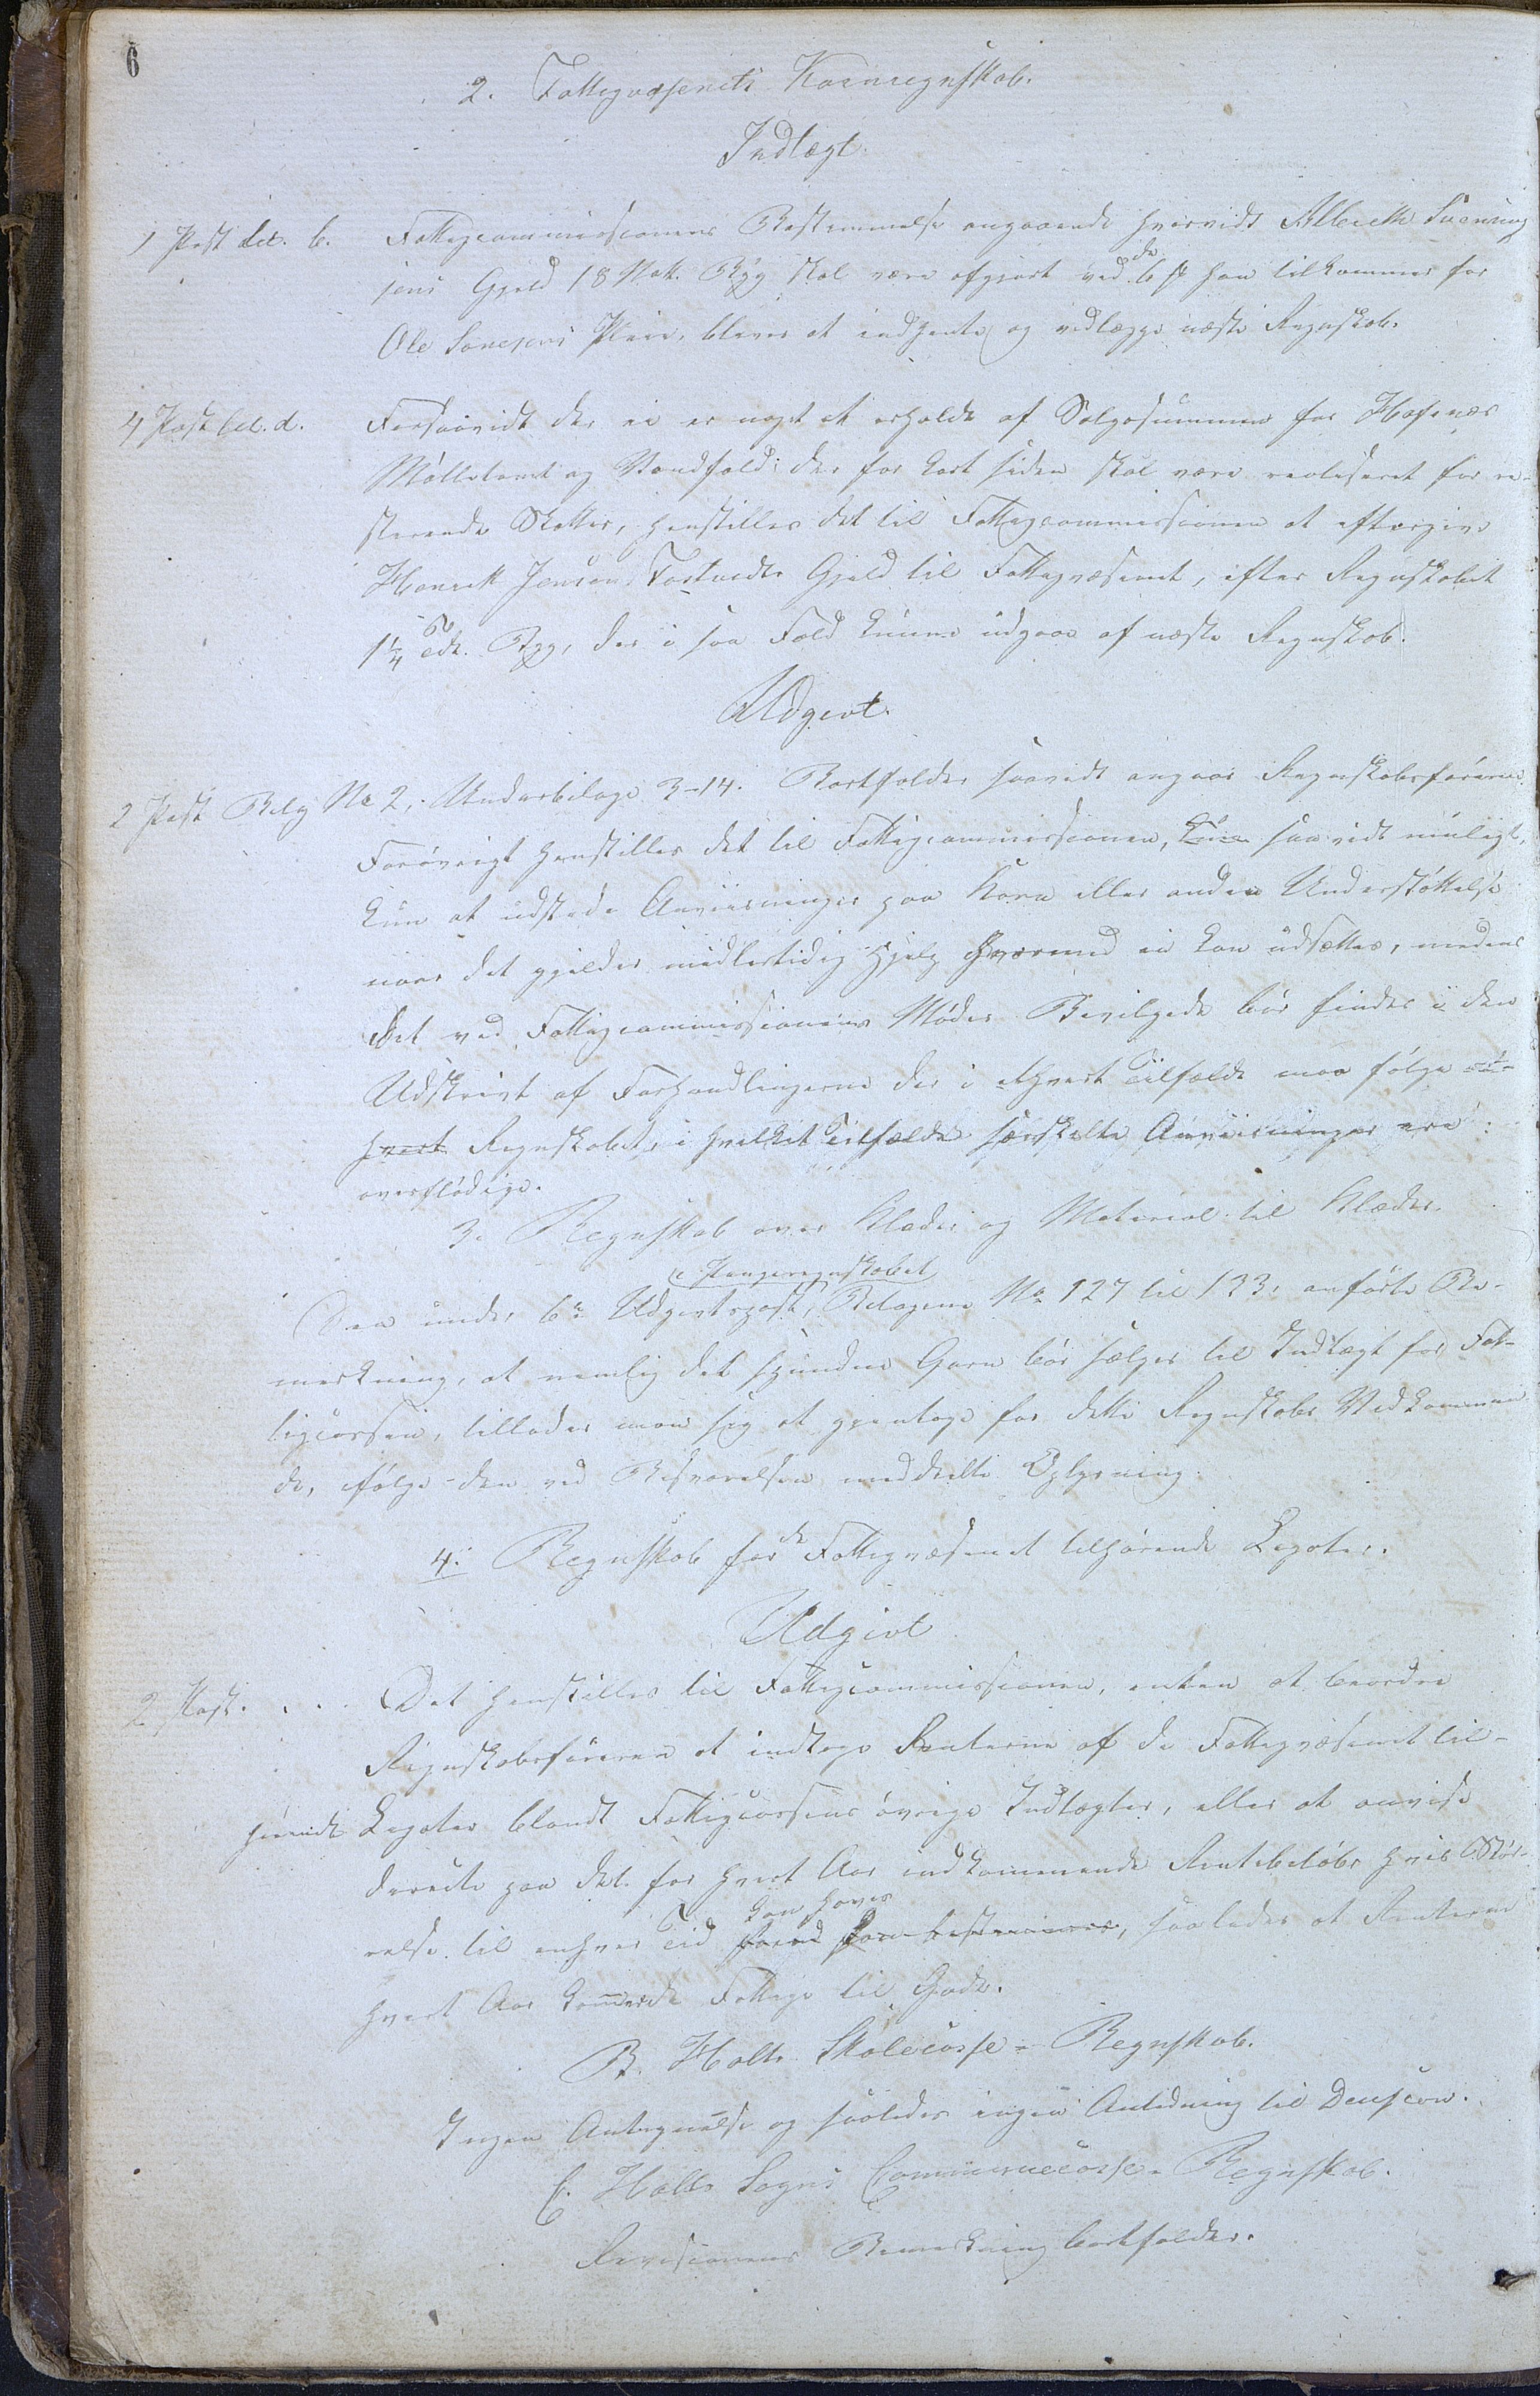 6
2. Fattigvæsenets Kornregnskab.
Indtægt.
1 Post Lit. b. Fattigcommissionens Bestemmelse angaaende hvorvidt Albreth Svenning
sens Gjæld 18 Byg skal være afgjort ved de 6 han tilkommer for
Ole Pleie, bliver at indhente og vedlægge næste Regnskab.
4 Post lit. d. Forsaavidt der ei er noget at erholde af Salgssummen for
Mølletomt og Vandfald: der for kort siden skal være realiseret for re-
sterende Skatter, henstilles det til Fattigcommissionen at eftergive
Henrik Jensen Tostvedts Gjæld til Fattigvæsenet, efter Regnskabet
1¼ Byg, der i saa Fald kunne udgaae af næste Regnskab.
Udgivt.
2 Post Bilg No 2, Underbilage 3-14. Bortfalder saavidt angaar Regnskabsføreren.
Forøvrigt henstilles det til Fattigcommissionen, kun saavidt muligt,
kun at udstede Anviisninger paa Korn eller anden Understøttelse
naar det gjelder midlertidig Hjelp hvormed ei kan udsættes, medens
det ved Fattigcommissionens Møder Bevilgede bør findes i den
Udskrivt af Forhandlingerne der i ethvert Tilfælde maa følge
hvert Regnskabet, i hvilket Tilfælde særskilte Anviisninger ere
overflødige.
3. Regnskab over Klæder og Material til Klæder.
i Pengeregnskabet
Den under 6te Udgivtspost, Bilagene No 127 til 133, anførte Be-
mærkning, at nemlig det spundne Garn bør sælges til Indtægt for Fat-
tigcassen, tillader man sig at gjentage for dette Regnskabs Vedkommen
de, ifølge den ved Besvarelsen meddeelte Oplysning.
4. Regnskab for de Fattigvæsenet tilhørende Legater.
Udgivt
2 Post. . . . Det henstilles til Fattigcommissionen, enten at beordre
Regnskabsføreren at indtage Renterne af de Fattigvæsenet til-
hørende Legater blandt Fattigcassens øvrige Indtægter, eller at anvise
directe paa det for hvert Aar indkommende Rentebeløb, hvis Stør-
kan haves
relse til enhver Tid bestemmes, saaledes at Renterne
hvert Aar komme de Fattige til Gode.
B. Holts Skolecasse-Regnskab.
Ingen Antegnelse og saaledes ingen Anledning til Decision.
C. Holts Sogns Communecasse-Regnskab.
Revisionens Bemærkning bortfalder.